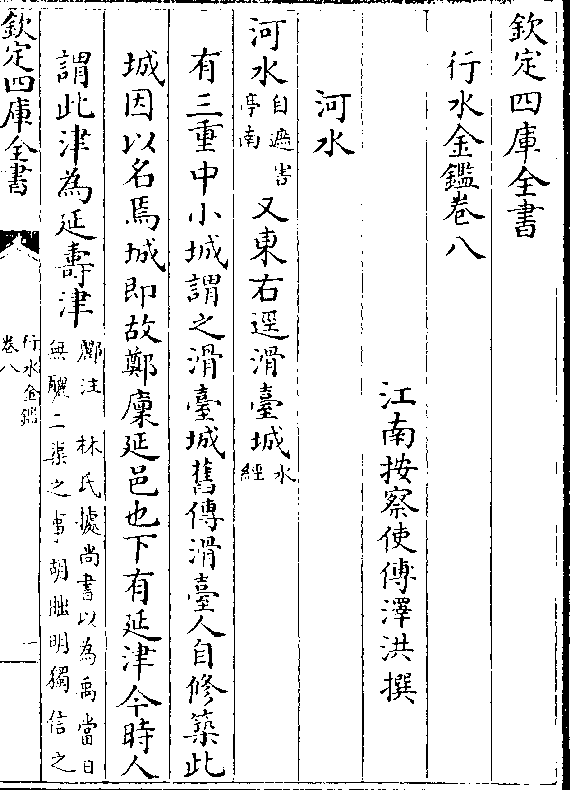 欽定四庫全書
行水金鑑卷八
江南按察使傅澤洪撰
河水
河水自遮害亭南又東右逕滑臺城水經
有三重中小城謂之滑臺城舊傳滑臺人自修築此
城因以名焉城即故鄭廩延邑也下有延津今時人
謂此津為延壽津酈注 林氏據尚書以為禹當日無釃二渠之事胡朏明獨信之
欽定四庫全書
行水金鑑
卷八
一